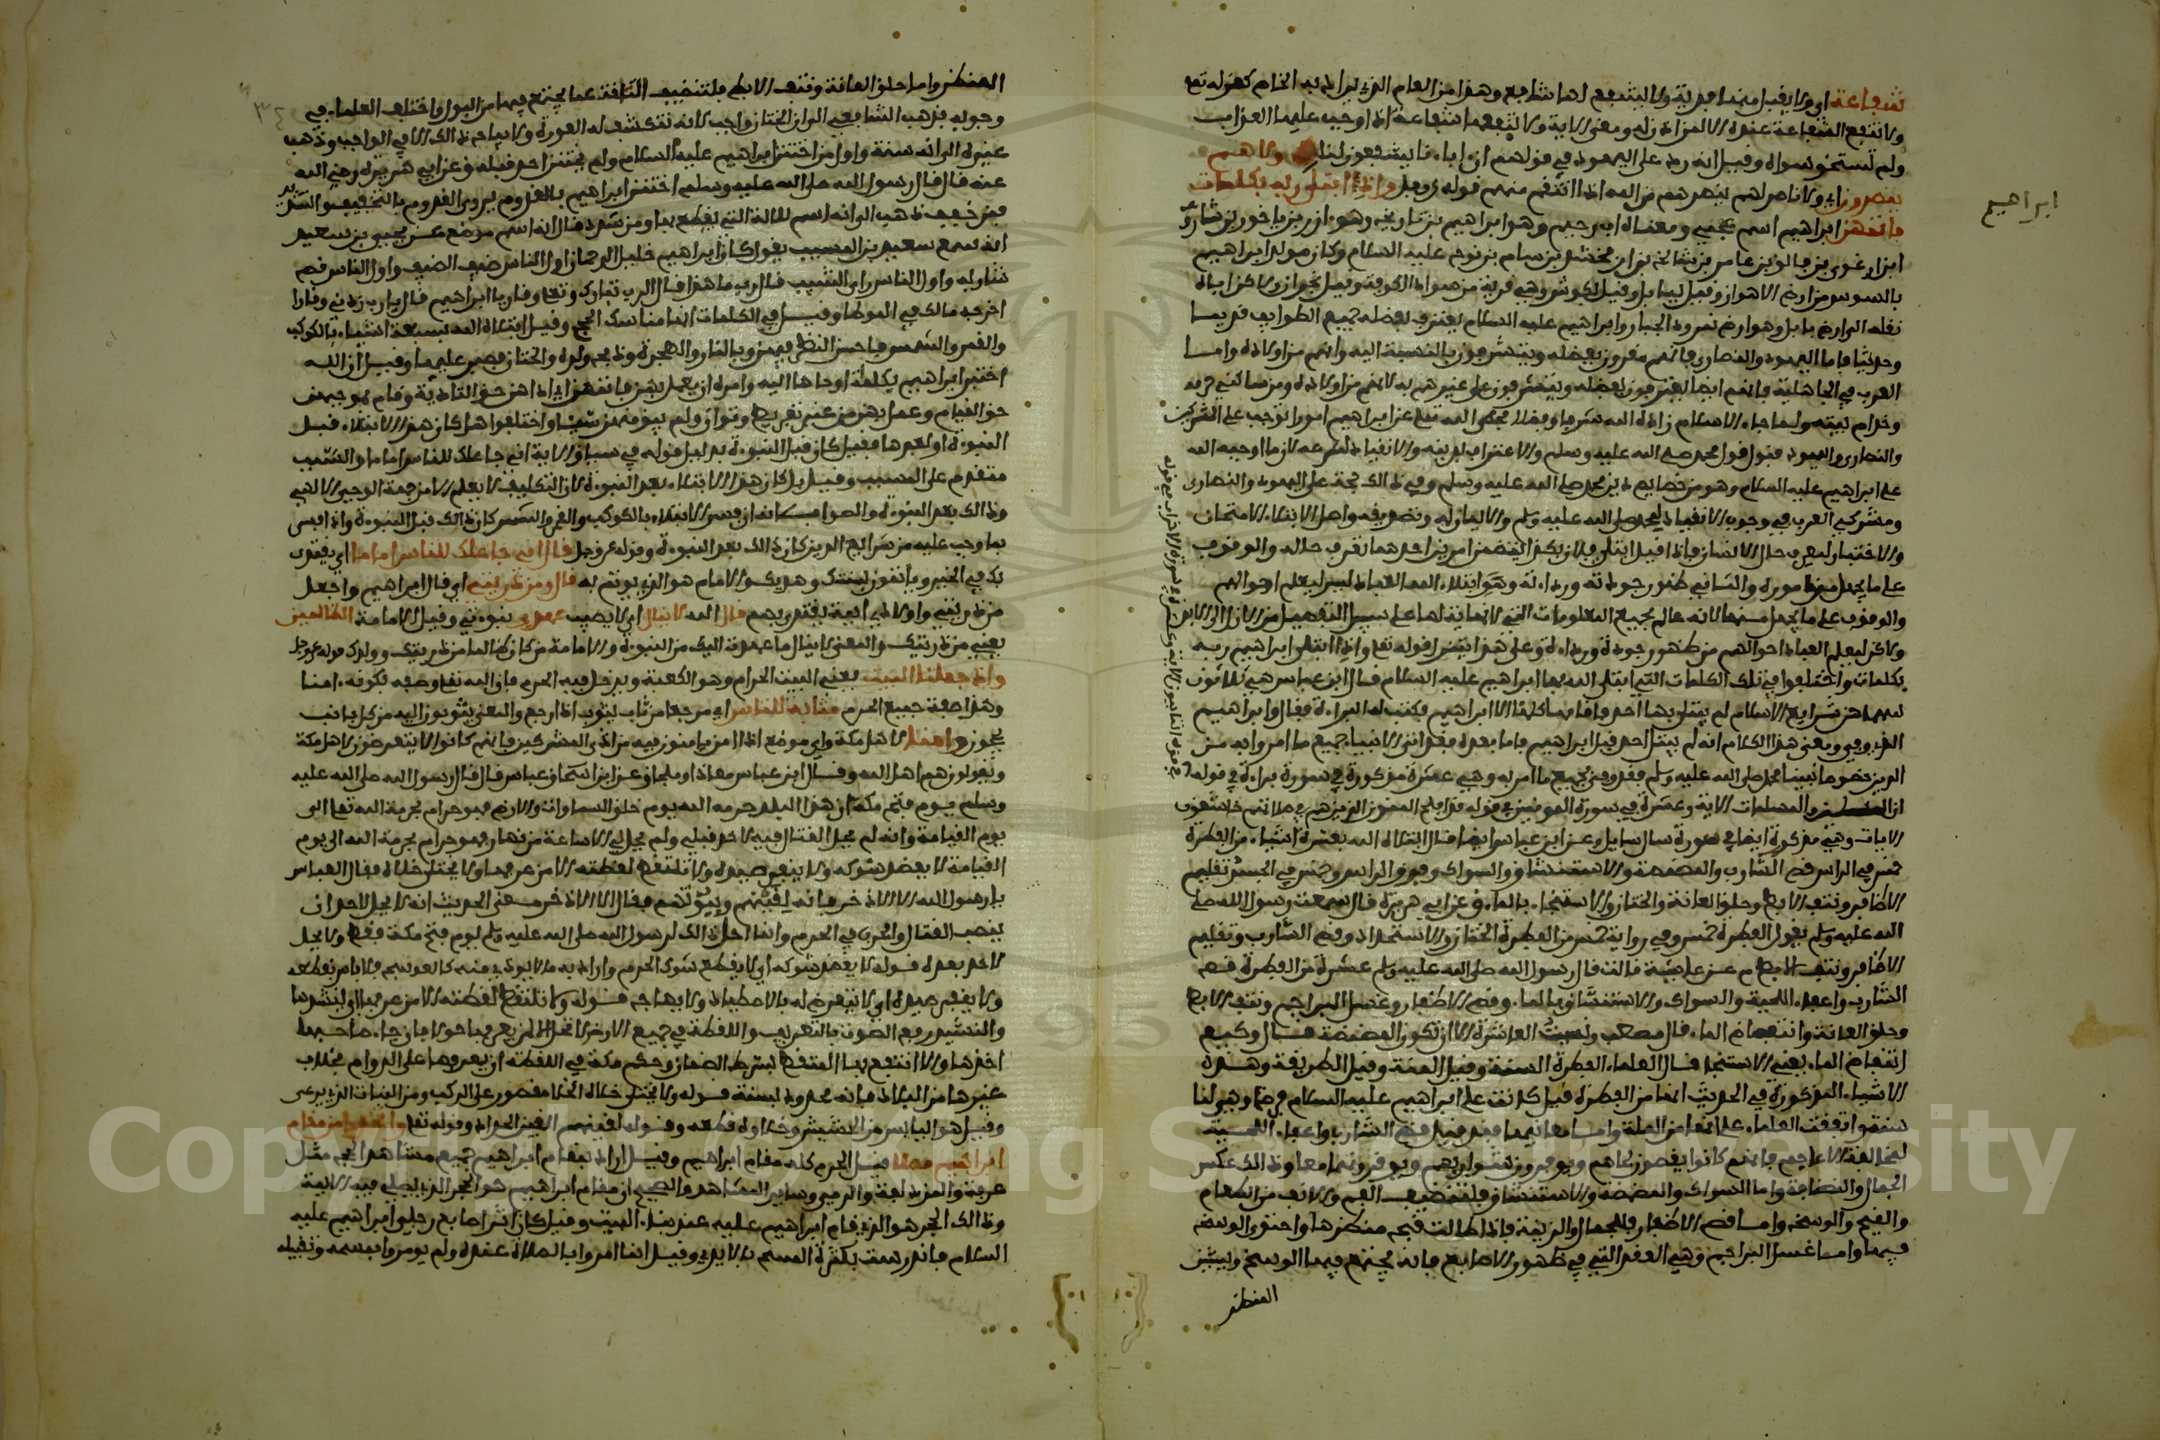 شفاعة اي ولا يقبل منها فدية ولا يشفع لها شافع وهذا من العام الذي يراد به الخاص كقوله تعلى
ولا تنفع الشفاعة عنده الا لمن اذن له ومعنى الاية ولا تنفعها شفاعة اذا وجب عليها العذاب
ولم تستحق سواه وقيل انه رد على اليهود في قولهم ان اباءنا يشفعون لنا ولا هم
ينصرون اي ولا ناصر لهم ينصرهم من الله اذا انتقم منهم قوله عز وجل واذ ابتلى ابراهيم ربه بكلمات
فاتمهن ابراهيم اسم عجمي ومعناه اب رحيم وهو ابراهيم بن تارخ وهو ازر بن ناخور بن شاروغ
ابن ارغوى بن فالغ بن عابر بن شالخ بن ارفخشد بن سام بن نوح عليه السلام وكان مولد ابراهيم
بالسوس من ارض الاهواز وقيل ببابل وقيل بكوثى وهي قرية من سواد الكوفة وقيل بحران ولاكن اباه
نقله الى ارض بابل وهو ارض نمرود الجبار وابراهيم عليه السلام يعترف بفضله جميع الطوايف قديما
وحديثا فاما اليهود والنصارى فانهم مقرون بفضله ويتشرفون بالنسبة اليه وانهم من اولاده واما
العرب في الجاهلية فانهم ايضا يعترفون بفضله ويتشرفون على غيرهم به لانهم من اولاده ومن ساكني حرمه
وخدام بيته ولما جاء الاسلام زاده الله شرفا وفضلا فحكى الله تعلى عن ابراهيم امورا توجب على المشركين
والنصارى واليهود قبول قول محمد صلى الله عليه وسلم والاعتراف بدينه والانقياد لشرعه لان ما اوجبه الله
على ابراهيم عليه السلام هو من خصايص دين محمد صلى الله عليه وسلم وفي ذالك حجة على اليهود والنصارى
ومشركي العرب في وجوب الانقياد لمحمد صلى الله عليه وسلم والايمان به وتصديقه واصل الابتلاء الامتحان
والاختبار ليعرف حال الانسان فاذا قيل ابتلى فلان بكذا يتضمن امرين احدهما تعرف حاله والوقوف
على ما يجهل من امره والثاني ظهور جودته ورداءته وابتلاء الله العباد ليس ليعلم احوالهم
والوقوف على ما يجهل منها لانه عالم بجميع المعلومات التي لا نهاية لها على سبيل التفصيل من الازل الى الابد
ولاكن ليعلم العباد احوالهم من ظهور جودة ورداءة وعلى هذا ينزل قوله تعلى واذ ابتلى ابراهيم ربه
بكلمات واختلفوا في تلك الكلمات التي ابتلى الله بها ابراهيم عليه السلام فقال ابن عباس هي ثلاثون
سهما هن شرايع الاسلام لم يبتل بها احد فاقامها كلها الا ابراهيم فكتب له البراءة فقال وابراهيم
الذي وفى ومعنى هذا الكلام انه لم يبتل احد قبل ابراهيم فاما بعده فقد اتى الانبياء بجميع ما امروا به من
الدين خصوصا نبينا محمد صلى الله عليه وسلم فقد وفى بجميع ما امر به وهي عشرة مذكورة في سورة براءة في قوله
ان المسلمين والمسلمات الاية وعشرة في سورة المومنين في قوله قد افلح المومنون الذين هم في صلاتهم خاشعون
الايات وهي مذكورة ايضا في سورة سال سايل وعن ابن عباس ايضا قال ابتلاه الله بعشرة اشياء من الفطرة
خمس في الراس قص الشارب والمضمضة والاستنشاق والسواك وفرق الراس وخمس في الجسد تقليم
الاظافر ونتف الابط وحلق العانة والختان والاستنجاء بالماء ق عن ابي هريرة قال سمعت رسول الله صلى
الله عليه وسلم يقول الفطرة خمس وفي رواية خمس من الفطرة الختان والاستحداد وقص الشارب وتقليم
الاظافر ونتف الابط م عن عايشة قالت قال رسول الله صلى الله عليه وسلم عشرة من الفطرة قص
الشارب واعفاء اللحية والسواك والاستنشاق بالماء وقص الاظفار وغسل البراجم ونتف الابط
وحلق العانة وانتقاص الماء قال مصعب ونسيت العاشرة الا ان تكون المضمضة قال وكيع
انتقاص الماء يعني الاستنجا قال العلماء الفطرة السنة وقيل الملة وقيل الطريقة وهذه
الاشياء المذكورة في الحديث انها من الفطرة قيل كانت على ابراهيم عليه السلام فرضا وهي لنا
سنة واتفقت العلماء على انها من الملة واما معانيها فقد قيل قص الشارب واعفاء اللحية
لمخالفة الاعاجم فانهم كانوا يقصون لحاهم ويوفرون شواربهم ويوفرونها معا وذالك عكس
الجمال والنظافة واما السواك والمضمضة والاستنشاق فلتنظيف الفم والانف من الطعام
والقيح والوسخ واما قص الاظفار فللجمال والزينة فاذا طالت قبح منظرها واحتوى الوسخ
فيها واما غسل البراجم وهي العقد التي في ظهور الاصابع فانه يجتمع فيها الوسخ ويشين
المنظر
ابراهيم
المنظر واما حلق العانة ونتف الابط فلتنظيف النافة عما يجتمع فيها من البول واختلف العلماء في
وجوبه فذهب الشافعي الى ان الختان واجب لانه تنكشف له العورة ولا يباح ذالك الا في الواجب وذهب
غيره الى انه سنة واول من اختتن ابراهيم عليه السلام ولم يختتن احد قبله ق عن ابي هريرة رضي الله
عنه قال قال رسول الله صلى الله عليه وسلم اختتن ابراهيم بالقدوم يروى القدوم بالتخفيف والتشديد
فمن خفف ذهب الى انه اسم للالة التي يقطع بها ومن شدد قال انه اسم موضع عن يحيى بن سعيد
انه سمع سعيد بن المسيب يقول كان ابراهيم خليل الرحمان اول الناس ضيف الضيف واول الناس قص
شاربه واول الناس راى الشيب قال رب ما هذا قال الرب تبارك وتعلى وقار يا ابراهيم قال يا رب زدني وقارا
اخرجه مالك في الموطا وقيل في الكلمات انها مناسك الحج وقيل ابتلاه الله بسبعة اشياء بالكوكب
والقمر والشمس فاحسن النظر فيهن وبالنار والهجرة وذبح ولده والختان فصبر عليها وقيل ان الله
اختبر ابراهيم بكلمات اوحاها اليه وامره ان يعمل بهن فاتمهن اي اداهن حق التادية وقام بموجبهن
حق القيام وعمل بهن من غير تفريط وتوان ولم ينقص منهن شيئا واختلفوا هل كان هذا الابتلاء قبل
النبوة او بعدها فقيل كان قبل النبوة بدليل قوله في سياق الاية اني جاعلك للناس اماما والسبب
متقدم على المسبب وقيل بل كان هذا الابتلاء بعد النبوة لان التكليف لا يعلم الا من جهة الوحي الالهي
وذالك بعد النبوة والصواب انه ان فسر الابتلاء بالكوكب والقمر والشمس كان ذالك قبل النبوة واذا فسر
بما وجب عليه من شرايع الدين كان ذالك بعد النبوة وقوله عز وجل قال اني جاعلك للناس اماما اي يقتدى
بك في الخير وياتمون بسنتك وهديك والامام هو الذي يوتم به قال ومن ذريتي اي قال ابراهيم واجعل
من ذريتي واولادي ايمة يقتدى بهم قال الله لا ينال اي لا يصيب عهدي نبوءتي وقيل الامامة الظالمين
يعني من ذريتك والمعنى لا ينال ما عهدت اليك من النبوة والامامة من كان ظالما من ذريتك وولدك قوله عز وجل
واذ جعلنا البيت يعني البيت الحرام وهو الكعبة ويدخل فيه الحرم فان الله تعلى وصفه بكونه امنا
وهذا صفة جميع الحرم مثابة للناس اي مرجعا من ثاب يثوب اذا رجع والمعنى يثوبون اليه من كل جانب
يحجون وامنا لاهل مكة واي موضع اذا امن يامنون فيه من اذى المشركين فانهم كانوا لا يتعرضون لاهل مكة
ويقولون هم اهل الله وقال ابن عباس معاذا وملجا ق عن ابن عباس قال قال رسول الله صلى الله عليه
وسلم يوم فتح مكة ان هذا البلد حرمه الله يوم خلق السماوات والارض فهو حرام بحرمة الله تعلى الى
يوم القيامة وانه لم يحل القتال فيه لاحد قبلي ولم يحل لي الا ساعة من نهار فهو حرام بحرمة الله الى يوم
القيامة لا يعضد شوكه ولا ينفر صيده ولا تلتقط لقطته الا من عرفها ولا يختلى خلاه فقال العباس
يا رسول الله الا الاذخر فانه لقينهم وبيوتهم فقال الا الاذخر معنى الحديث انه لا يحل لاحد ان
ينصب القتال والحرب في الحرم وانما احل ذالك لرسول الله صلى الله عليه وسلم يوم فتح مكة فقط ولا يحل
لاحد بعده قوله لا يعضد شوكه اي لا يقطع شوك الحرم واراد به ما لا يوذي منه كالعوسج فلا باس بقطعه
ولا ينفر صيده اي لا يتعرض له بالاصطياد ولا يهاج قوله ولا تلتقط لقطته الا من عرفها اي ينشدها
والنشيد رفع الصوت بالتعريف واللقطة في جميع الارض لا تحل الا لمن يعرفها حولا فان جاء صاحبها
اخذها والا انتفع بها الملتقط بشرط الضمان وحكم مكة في اللقطة ان يعرفها على الدوام بخلاف
غيرها من البلاد فانه محدود بسنة قوله ولا يختلى خلاه الخلا مقصور على الركب ومن النبات الذي يرعى
وقيل هو اليابس من الحشيش وخلاه قطعه وقوله لقينهم القين الحداد وقوله تعلى واتخذوا من مقام
ابراهيم مصلى قيل الحرم كله مقام ابراهيم وقيل اراد بمقام ابراهيم جميع مشاهد الحج مثل
عرفة والمزدلفة والرمي وساير المشاهد والصحيح ان مقام ابراهيم هو الحجر الذي يصلى فيه الايمة
وذالك الحجر هو الذي قام ابراهيم عليه عند بناء البيت وقيل كان اثر اصابع رجلي ابراهيم عليه
السلام فاندرست بكثرة المسح بالايدي وقيل انما امروا بالصلاة عنده ولم يومروا بمسحه وتقبيله
Copyright © King Saud University